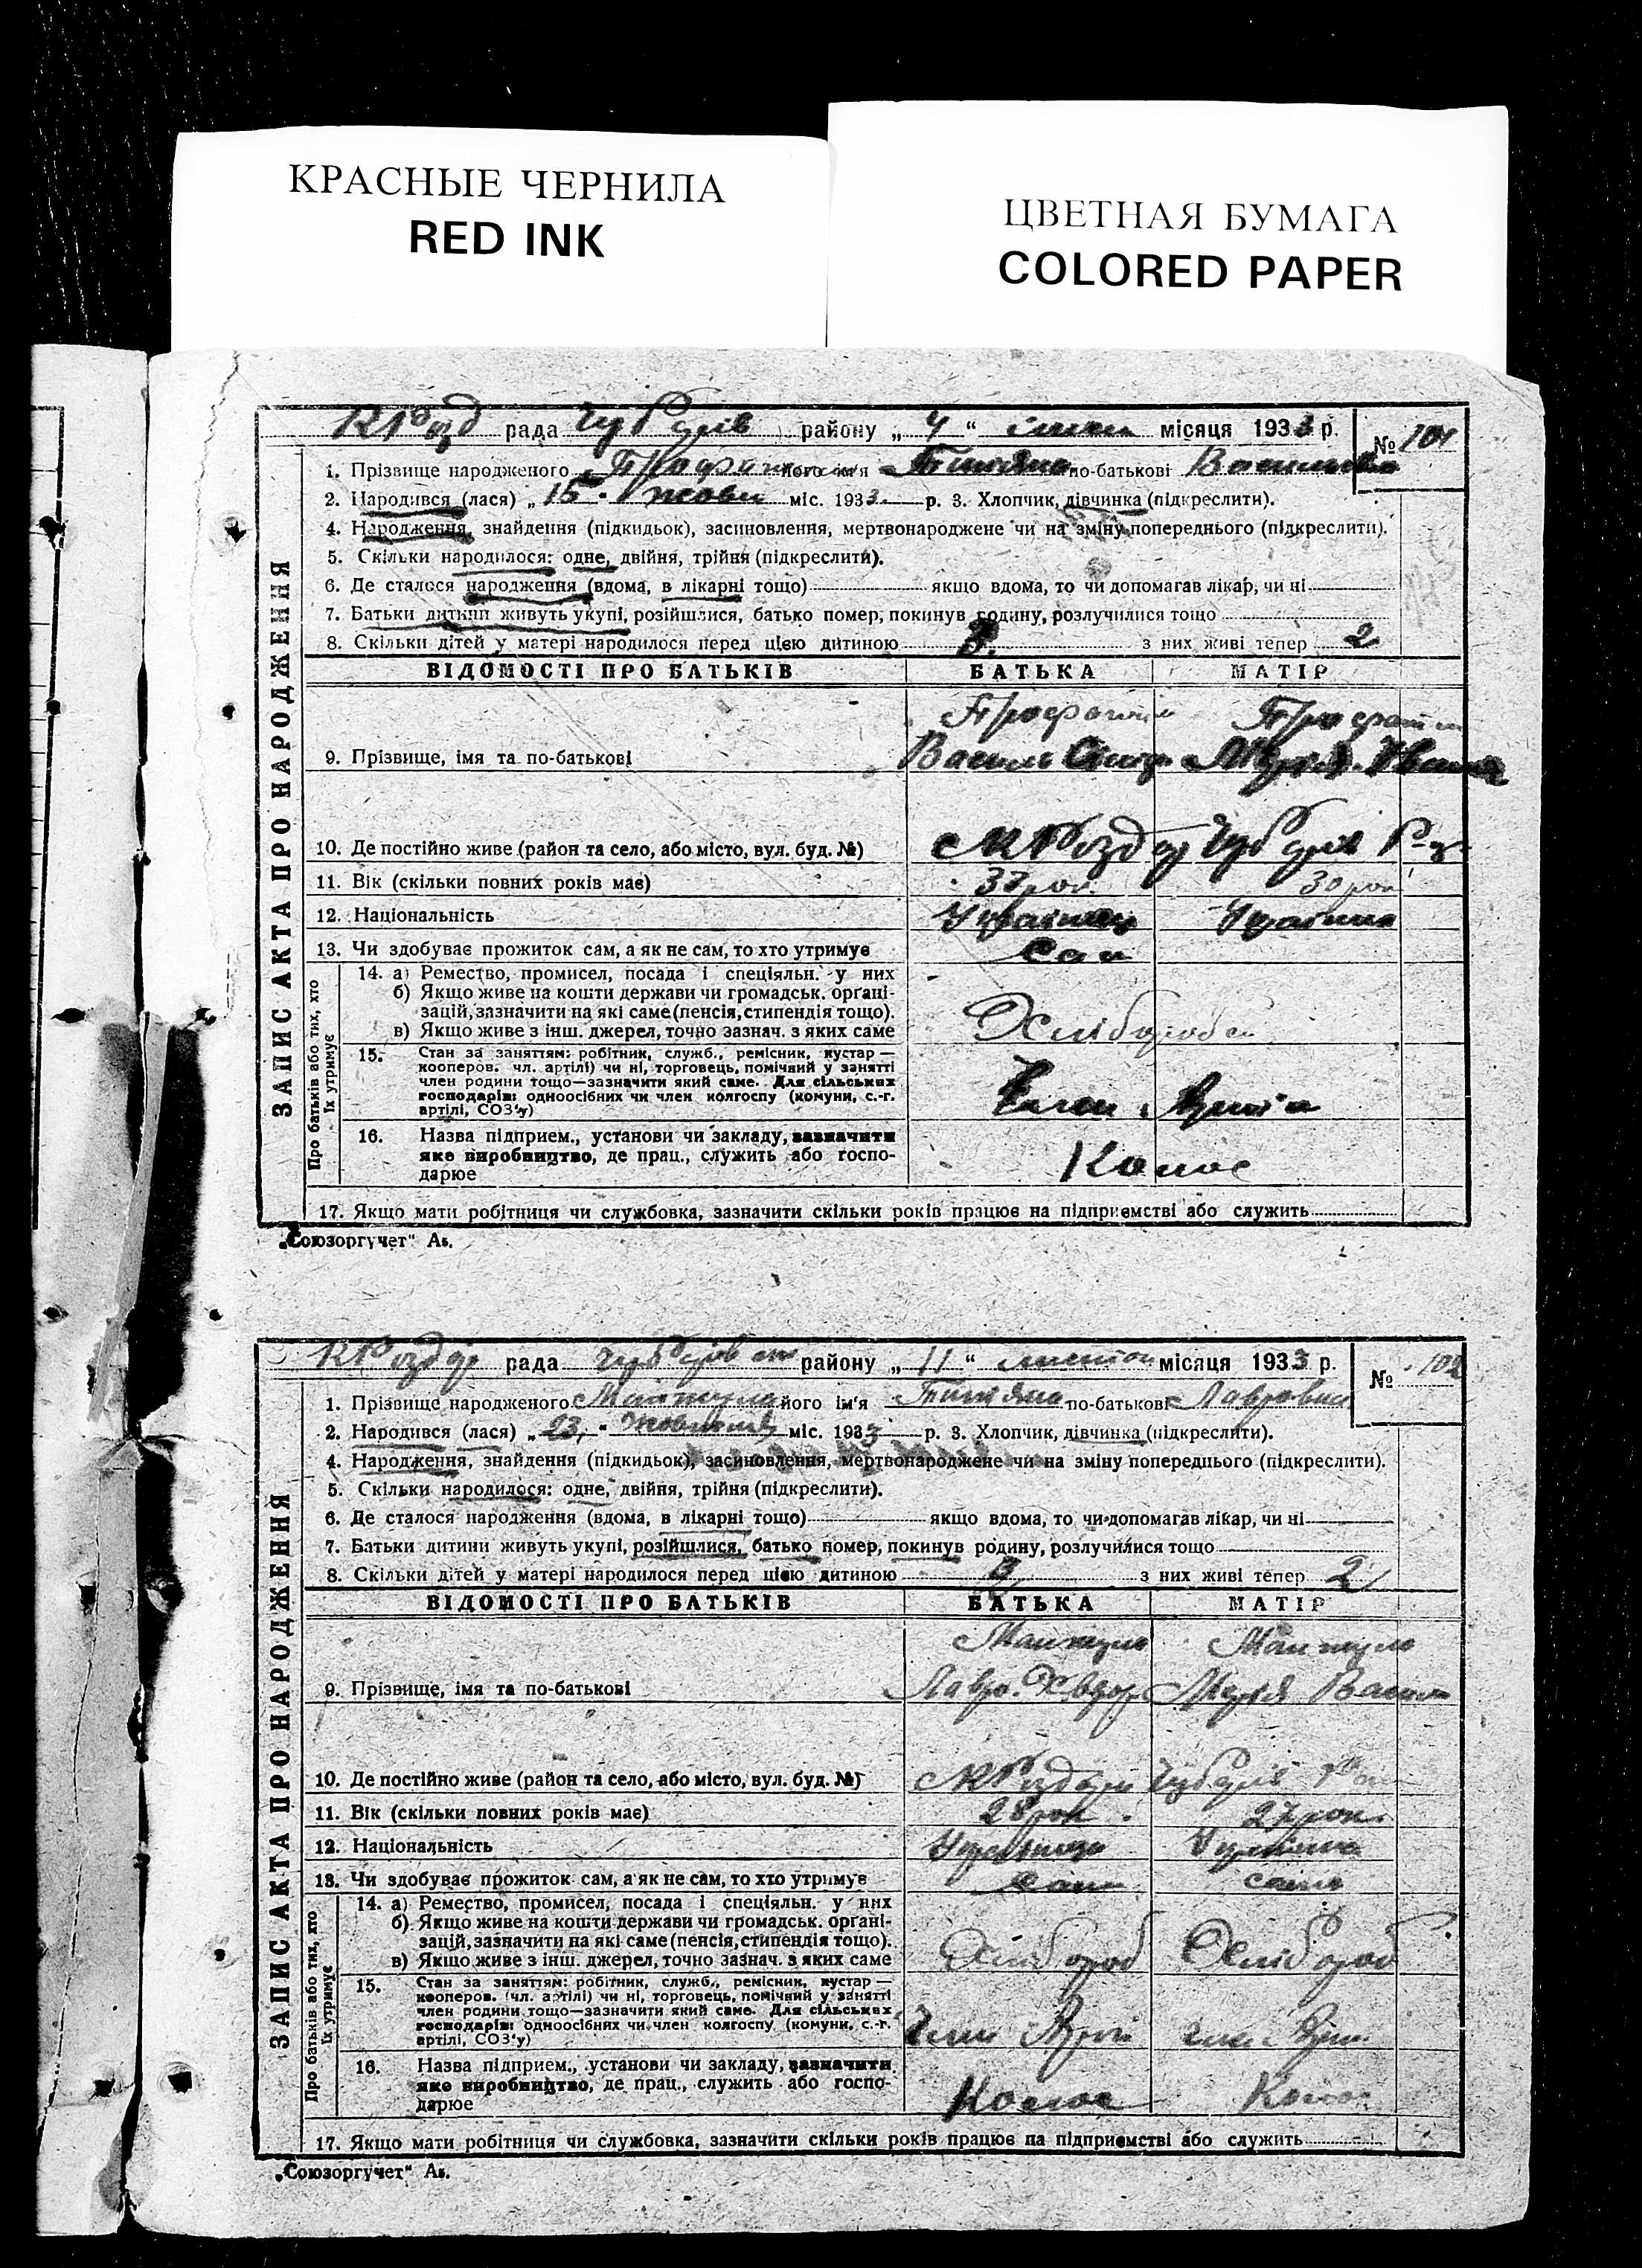 КРАСНЫЕ ЧЕРНИЛА
RED INK
ЦВЕТНАЯ БУМАГА
COLORED PAPER
рада району „ 4 “ місяця 1933 р. № 101
1. Прізвище народженого його ім'я Титяна по-батькові Васильвна
2. Народився (лася) „ 15 “ жовт міс. 1933 р. 3. Хлопчик, дівчинка (підкреслити).
4. Народження, знайдення (підкидьок), засиновлення, мертвонароджене чи на зміну попереднього (підкреслити).
5. Скільки народилося: одне, двійня, трійня (підкреслити).
6. Де сталося народження (вдома, в лікарні тощо) якщо вдома, то чи допомагав лікар, чи ні
7. Батьки дитини живуть укупі, розійшлися, батько помер, покинув родину, розлучилися тощо
8. Скільки дітей у матері народилося перед цією дитиною 3 з них живі тепер 2
ЗАПИС АКТА ПРО НАРОДЖЕННЯ
ВІДОМОСТІ ПРО БАТЬКІВ БАТЬКА МАТІР
9. Прізвище, імя та по-батькові Василь Марія Ивана
10. Де постійно живе (район та село, або місто, вул. буд. №)
11. Вік (скільки повних років має) рок. 30 рок
12. Національність Украінец Украінка
13. Чи здобуває прожиток сам, а як не сам, то хто утримує Сам
Про батьків або тих, хто їх утримує
14. а) Ремество, промисел, посада і спеціяльн. у них
б) Якщо живе на кошти держави чи громадськ. орґані-
зацій, зазначити на які саме (пенсія, стипендія тощо).
в) Якщо живе з інш. джерел, точно зазнач. з яких саме Хлібороби
15. Стан за заняттям: робітник, служб., ремісник, кустар —
кооперов. чл. артілі) чи ні, торговець, помічний у занятті
член родини тощо—зазначити який саме. Для сільських
господарів: одноосібних чи член колгоспу (комуни, с.-г.
артілі, СОЗ'у) Член Артіа
16. Назва підприєм., установи чи закладу, зазначити
яке виробництво, де прац., служить або госпо-
дарює Колос
17. Якщо мати робітниця чи службовка, зазначити скільки років працює на підприємстві або служить
„Союзоргучет“ Аь.
рада району „ 11 “ листоп місяця 1933 р. № 102
1. Прізвище народженого Манжула його ім'я Титяна по-батькові Лавровна
2. Народився (лася) „ 23 “ Жовтня міс. 1933 р. 3. Хлопчик, дівчинка (підкреслити).
4. Народження, знайдення (підкидьок), засиновлення, мертвонароджене чи на зміну попереднього (підкреслити).
5. Скільки народилося: одне, двійня, трійня (підкреслити).
6. Де сталося народження (вдома, в лікарні тощо) якщо вдома, то чи допомагав лікар, чи ні
7. Батьки дитини живуть укупі, розійшлися, батько помер, покинув родину, розлучилися тощо
8. Скільки дітей у матері народилося перед цією дитиною з них живі тепер 2
ЗАПИС АКТА ПРО НАРОДЖЕННЯ
ВІДОМОСТІ ПРО БАТЬКІВ БАТЬКА МАТІР
Манжула Манжула
9. Прізвище, імя та по-батькові Лавро Хведор Марія Васил
10. Де постійно живе (район та село, або місто, вул. буд. №)
11. Вік (скільки повних років має) 28 рок. 27 рок.
12. Національність Украінець Українка
13. Чи здобуває прожиток сам, а як не сам, то хто утримує Сам сама
Про батьків або тих, хто їх утримує
14. а) Ремество, промисел, посада і спеціяльн. у них
б) Якщо живе на кошти держави чи громадськ. орґані-
зацій, зазначити на які саме (пенсія, стипендія тощо).
в) Якщо живе з інш. джерел, точно зазнач. з яких саме Хлібороб Хлібороб
15. Стан за заняттям: робітник, служб., ремісник, кустар —
кооперов. (чл. артілі) чи ні, торговець, помічний у занятті
член родини тощо—зазначити який саме. Для сільських
господарів: одноосібних чи член колгоспу (комуни, с.-г.
артілі, СОЗ'у) Член Арті член Арті
16. Назва підприєм., установи чи закладу, зазначити
яке виробництво, де прац., служить або госпо-
дарює Колос Колос
17. Якщо мати робітниця чи службовка, зазначити скільки років працює на підприємстві або служить
„Союзоргучет“ Аь.